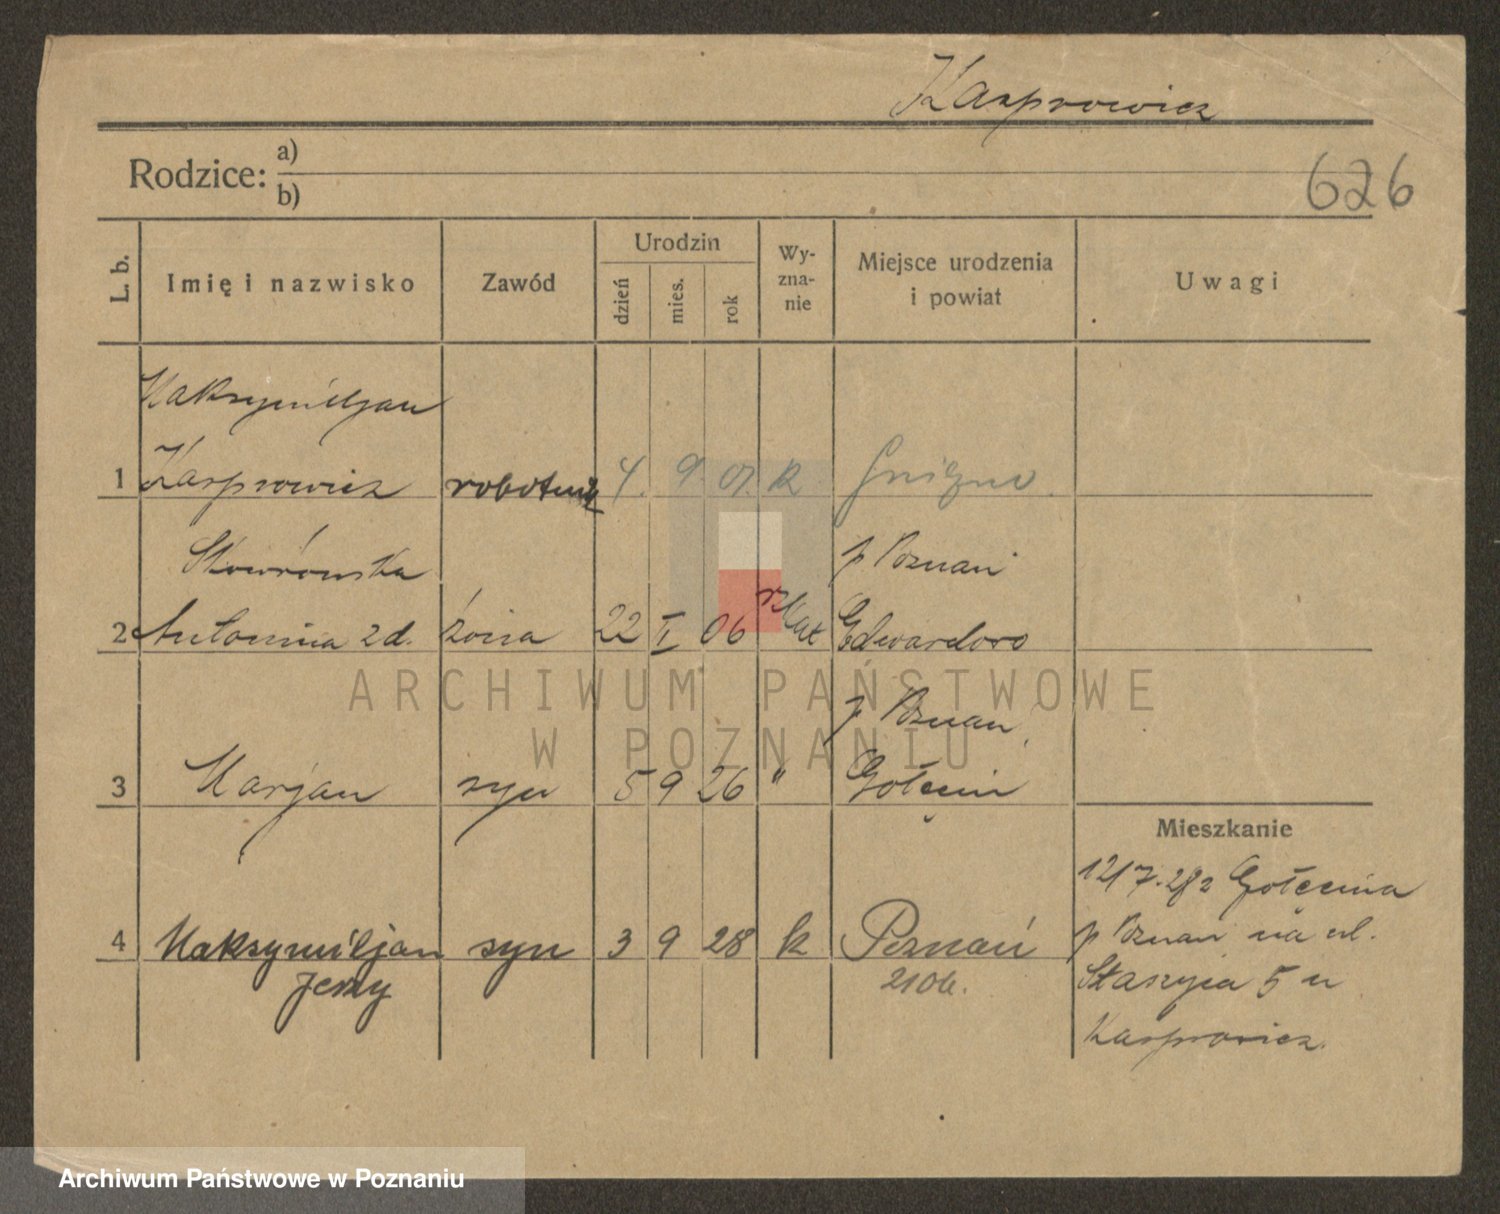 Kasprowicz
Rodzice: a)
b)
626
L. b.
Imię i nazwisko
Zawód
Urodzin
dzień
mies.
rok
Wy-
zna-
nie
Miejsce urodzenia
i powiat
Uwagi
Maksymiljan
1 Kasprowicz robotnik 4. 9. 01. k Gniezno.
Skowrońska p Poznań
2 Antonina zd. żona 22 I 06 rz kat Edwardowo
p Poznań
3 Marjan syn 5 9 26 " Gołęcin
Mieszkanie
12/7.28 z Gołęcina
p Poznań na ul.
4 Maksymiljan syn 3 9 28 k Poznań
Jerzy
Staszyca 5 u
Kasprowicz.
ARCHIWUM PAŃSTWOWE
W POZNANIU
Archiwum Państwowe w Poznaniu